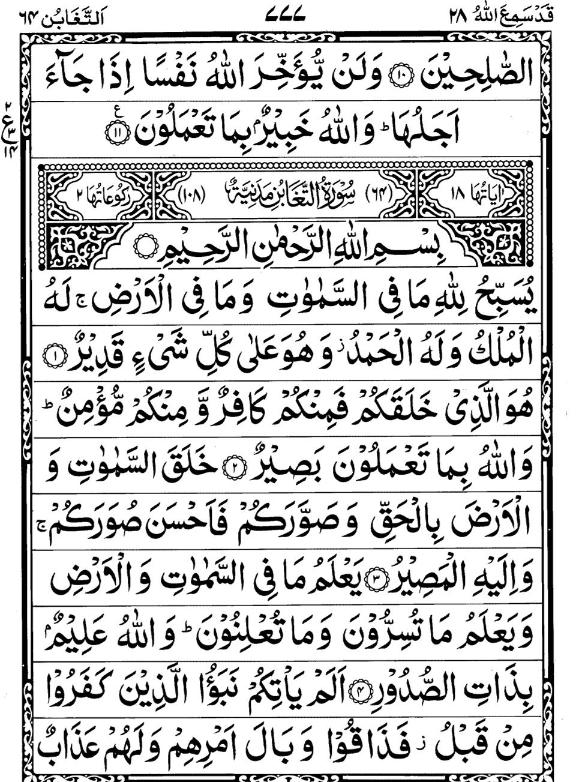 قَدْ سَمِعَ اللّٰهُ ٢٨ ٧٧٧ اَلتَّغَابُن ٦٤
الصّٰلِحِيْنَ ۝١٠ وَلَنْ يُّؤَخِّرَ اللّٰهُ نَفْسًا اِذَا جَآءَ
اَجَلُهَا ؕ وَاللّٰهُ خَبِيْرٌۢ بِمَا تَعْمَلُوْنَ ۝١١ ع
٢
ع
٣
١٤
اٰيَاتُهَا ١٨ (٦٤) سُوْرَةُ التَّغَابُنِ مَدَنِيَّةٌ (١٠٨) رُكُوْعَاتُهَا ٢
بِسْمِ اللّٰهِ الرَّحْمٰنِ الرَّحِيْمِ ۝
يُسَبِّحُ لِلّٰهِ مَا فِى السَّمٰوٰتِ وَمَا فِى الْاَرْضِ ۚ لَهُ
الْمُلْكُ وَلَهُ الْحَمْدُ ؗ وَهُوَ عَلٰى كُلِّ شَىْءٍ قَدِيْرٌ ۝١
هُوَ الَّذِىْ خَلَقَكُمْ فَمِنْكُمْ كَافِرٌ وَّمِنْكُمْ مُّؤْمِنٌ ؕ
وَاللّٰهُ بِمَا تَعْمَلُوْنَ بَصِيْرٌ ۝٢ خَلَقَ السَّمٰوٰتِ وَ
الْاَرْضَ بِالْحَقِّ وَصَوَّرَكُمْ فَاَحْسَنَ صُوَرَكُمْ ۚ
وَاِلَيْهِ الْمَصِيْرُ ۝٣ يَعْلَمُ مَا فِى السَّمٰوٰتِ وَالْاَرْضِ
وَيَعْلَمُ مَا تُسِرُّوْنَ وَمَا تُعْلِنُوْنَ ؕ وَاللّٰهُ عَلِيْمٌۢ
بِذَاتِ الصُّدُوْرِ ۝٤ اَلَمْ يَاْتِكُمْ نَبَؤُا الَّذِيْنَ كَفَرُوْا
مِنْ قَبْلُ ؗ فَذَاقُوْا وَبَالَ اَمْرِهِمْ وَلَهُمْ عَذَابٌ